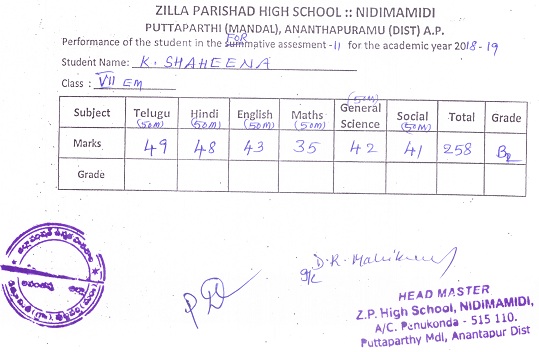 ZILLA PARISHAD HIGH SCHOOL :: NIDIMAMIDI
PUTTAPARTHI (MANDAL), ANANTHAPURAMU (DIST) A.P.
Performance of the student in the FORmative assesment -II for the academic year 2018-19
Student Name: K. SHAHEENA
Class : VII EM
Subject Telugu (50M) Hindi (50M) English (50M) Maths (50M) General Science (50M) Social (50M) Total Grade
Marks 49 48 43 35 42 41 258 B2
Grade
HEAD MASTER
Z.P. High School, NIDIMAMIDI,
A/C. Penukonda - 515 110.
Puttaparthy Mdl, Anantapur Dist